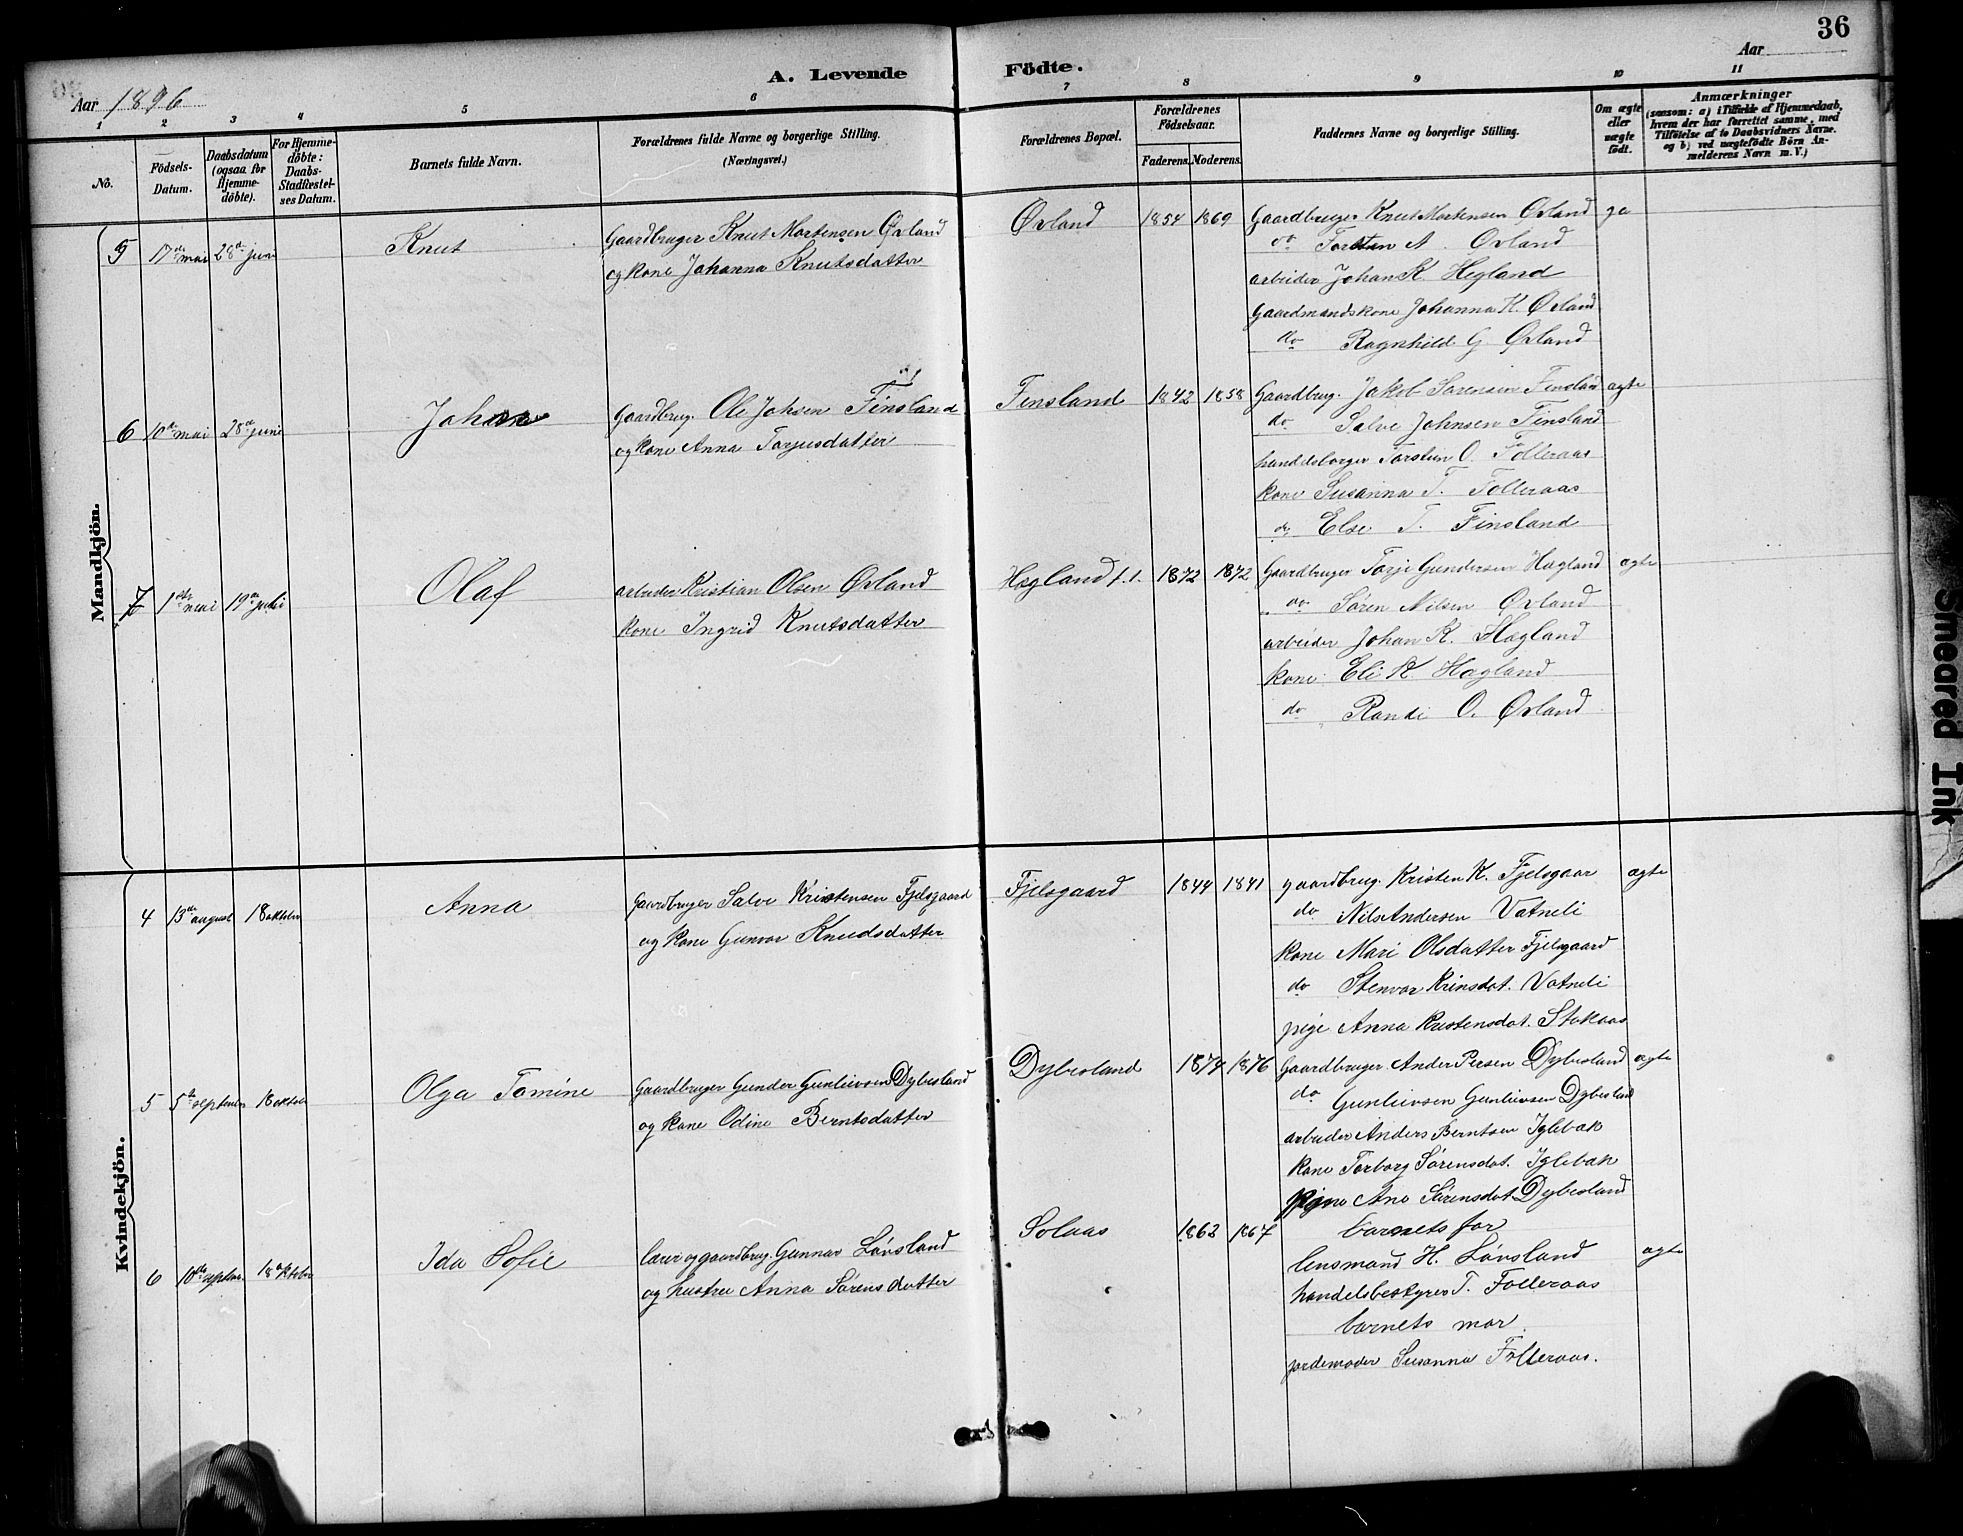 36
A. Levende Födte.
Aar
Aar 1896
1 2 3 4 5 6 7 8 9 10 11
No.
Födsels-
Datum.
Daabsdatum
(ogsaa for
Hjemme-
döbte).
For Hjemme-
döbte:
Daabs-
Stadfæstel-
ses Datum.
Barnets fulde Navn.
Forældrenes fulde Navne og borgerlige Stilling.
(Næringsvei.)
Forældrenes Bopæl.
Forældrenes
Födselsaar.
Faderens. Moderens.
Faddernes Navne og borgerlige Stilling.
Om ægte
eller
uægte
født.
Anmærkninger
(saasom: a) i Tilfælde af Hjemmedaab,
hvem der har forrettet samme, med
Tilföielse af to Daabsvidners Navne.
og b) ved uægtefödte Börn An-
melderens Navn m. V.)
Mandkjön.
5 17de mai 28de juni Knut
Gaardbruger Knut Mortensen Øvland
og kone Johanna Knutsdatter
Øvland 1854 1869
Gaardbruger Knut Mortensen Øvland
do Torstein A. Øvland
arbeider Johan K. Hegland
Gaardmandskone Johanna K. Øvland
do Ragnhild G. Øvland
6 10de mai 28de juni Johan
Gaardbrug. Ole Johsen Finsland
og kone Anna Torjusdatter
Finsland 1842 1858
Gaardbrug. Jakob Sørensen Finsland ægte
do Salve Johnsen Finsland
handelsborger Torstein O. Folleraas
kone Susanna T. Folleraas
do Else T. Finsland
7 1ste mai 19de juli Olaf
arbeider Kristian Olsen Øvland
kone Ingrid Knutsdatter
Hægland f.t. 1872 1872
Gaardbruger Torje Gundersen Hægland ægte
do Søren Nilsen Øvland
arbeider Johan K. Hægland
kone Eli K. Hægland
do Randi O. Øvland
Kvindekjön.
4 13de august 18 oktober Anna
gaardbruger Salve Kristensen Fjelsgaard
og kone Gunvor Knudsdatter
Fjelsgaard 1844 1841
gaardbrug. Kristen K. Fjelsgaar ægte
do Nils Andersen Vatneli
kone Mari Olsdatter Fjelsgaard
do Stenvor Krinsdat. Vatneli
pige Anna Kristensdat. Stakaas
5 5te september 18 oktober Olga Tomine
gaardbruger Gunder Gunleivsen Dybesland
og kone Odine Berntsdatter
Dybesland 1874 1876
Gaardbruger Ander Persen Dybesland ægte
do Gunleivsen Gunleivsen Dybesland
arbeider Anders Berntsen Iglebæk
kone Torborg Sørensdat. Iglebæk
pige Ane Sørensdat. Dybesland
6 10de septbr. 18 oktober Ida Sofie
lærer og gaardbrug. Gunnar Løvsland
og hustru Anna Sørensdatter
Solaas 1862 1867
barnets far
lensmand H. Løvsland ægte
handelsbestyrer T. Folleraas
barnets mor
jordemoder Susanna Folleraas.
Smeared Ink